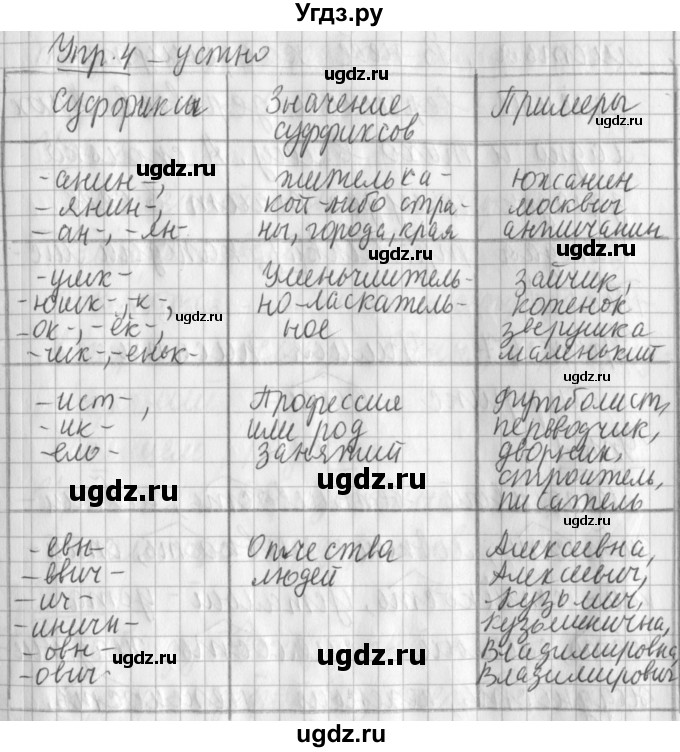 Угдз.ру
Упр. 4 – устно
ugdz.ru
Суффиксы
Значение суффиксов
Примеры
ugdz.ru
-анин-,
-янин-,
-ан-, -ян-
ugdz.ru
житель ка-
кой-либо стра-
ны, города, края
южанин
москвич
англичанин
ugdz.ru
ugdz.ru
-ушк-
-юшк-, -к-,
-ок-, -ёк-,
-чик-, -еньк-
ugdz.ru
Уменьшитель-
но-ласкатель-
ное
зайчик,
котенок
зверушка
маленький
ugdz.ru
-ист-,
-ик-
ugdz.ru
Профессия
или род
занятий
ugdz.ru
Футболист,
дворник,
строитель,
писатель
ugdz.ru
-евн-
-ич-
-овн-
-ович-
ugdz.ru
Отчества
людей
ugdz.ru
Алексеевна,
Кузьмич,
Кузьминична,
Владимировна,
ugdz.ru
ugdz.ru
ugdz.ru
ugdz.ru